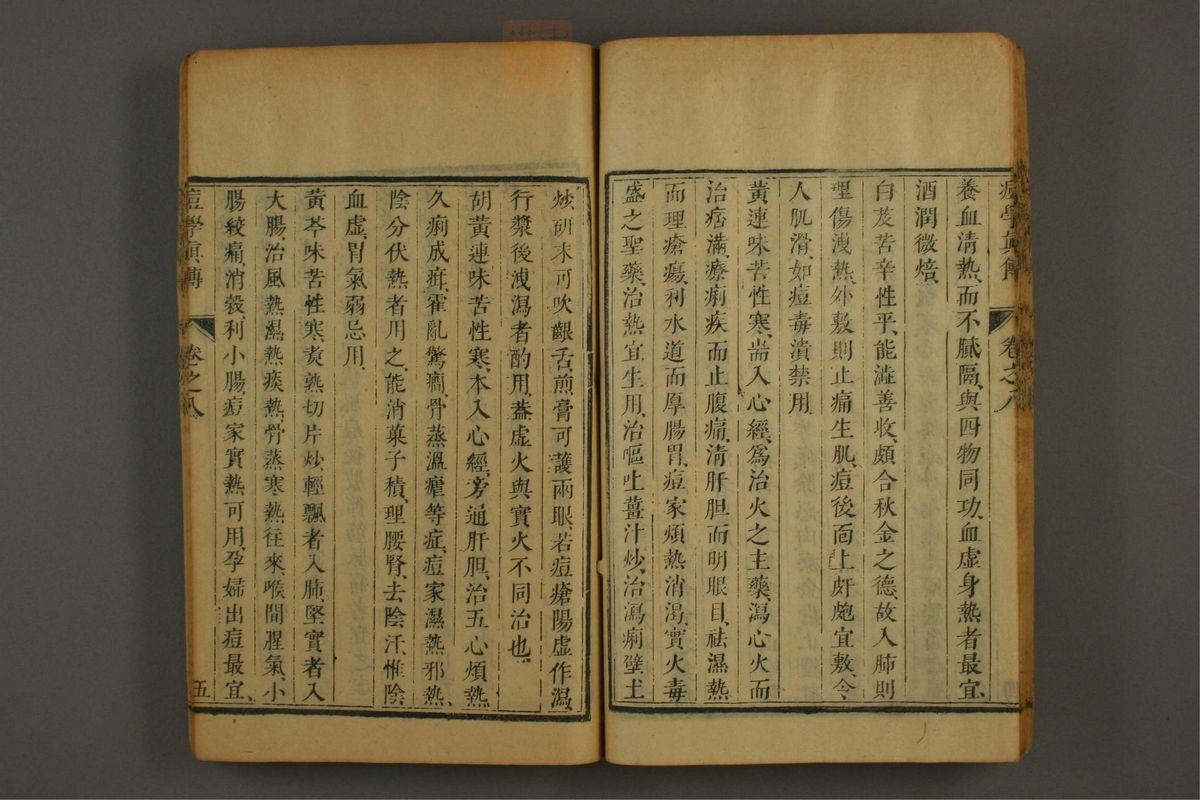 痘學真傳 卷之八
養血清熱、而不膩隔、與四物同功、血虛身熱者最宜、
酒潤微焙、
白芨苦辛性平、能澁善收、頗合秋金之德、故入肺則
理傷洩熱、外敷則止痛生肌、痘後面上皯皰宜敷、令
人肌滑、如痘毒潰禁用、
黃連味苦性寒、耑入心經、爲治火之主藥、瀉心火而
治痞滿、療痢疾而止腹痛、清肝胆而明眼目、祛濕熱
而理瘡瘍、利水道而厚腸胃、痘家煩熱消渴、實火毒
盛之聖藥、治熱宜生用、治嘔吐薑汁炒、治瀉痢壁土
炒、研末可吹齦舌、煎膏可護兩眼、若痘瘡陽虛作瀉、
行漿後洩瀉者酌用、葢虛火與實火不同治也、
胡黃連味苦性寒、本入心經、旁通肝胆、治五心煩熱
久痢成疳、霍亂驚癎、骨蒸溫瘧等症、痘家濕熱邪熱、
陰分伏熱者用之、能消菓子積、理腰腎、去陰汗、惟陰
血虛、胃氣弱忌用、
黃芩味苦性寒、煑熟切片炒、輕飄者入肺、堅實者入
大腸、治風熱濕熱痰熱、骨蒸寒熱往來、喉間腥氣、小
腸絞痛、消穀利小腸、痘家實熱可用、孕婦出痘最宜、
痘學真傳 卷之八 五